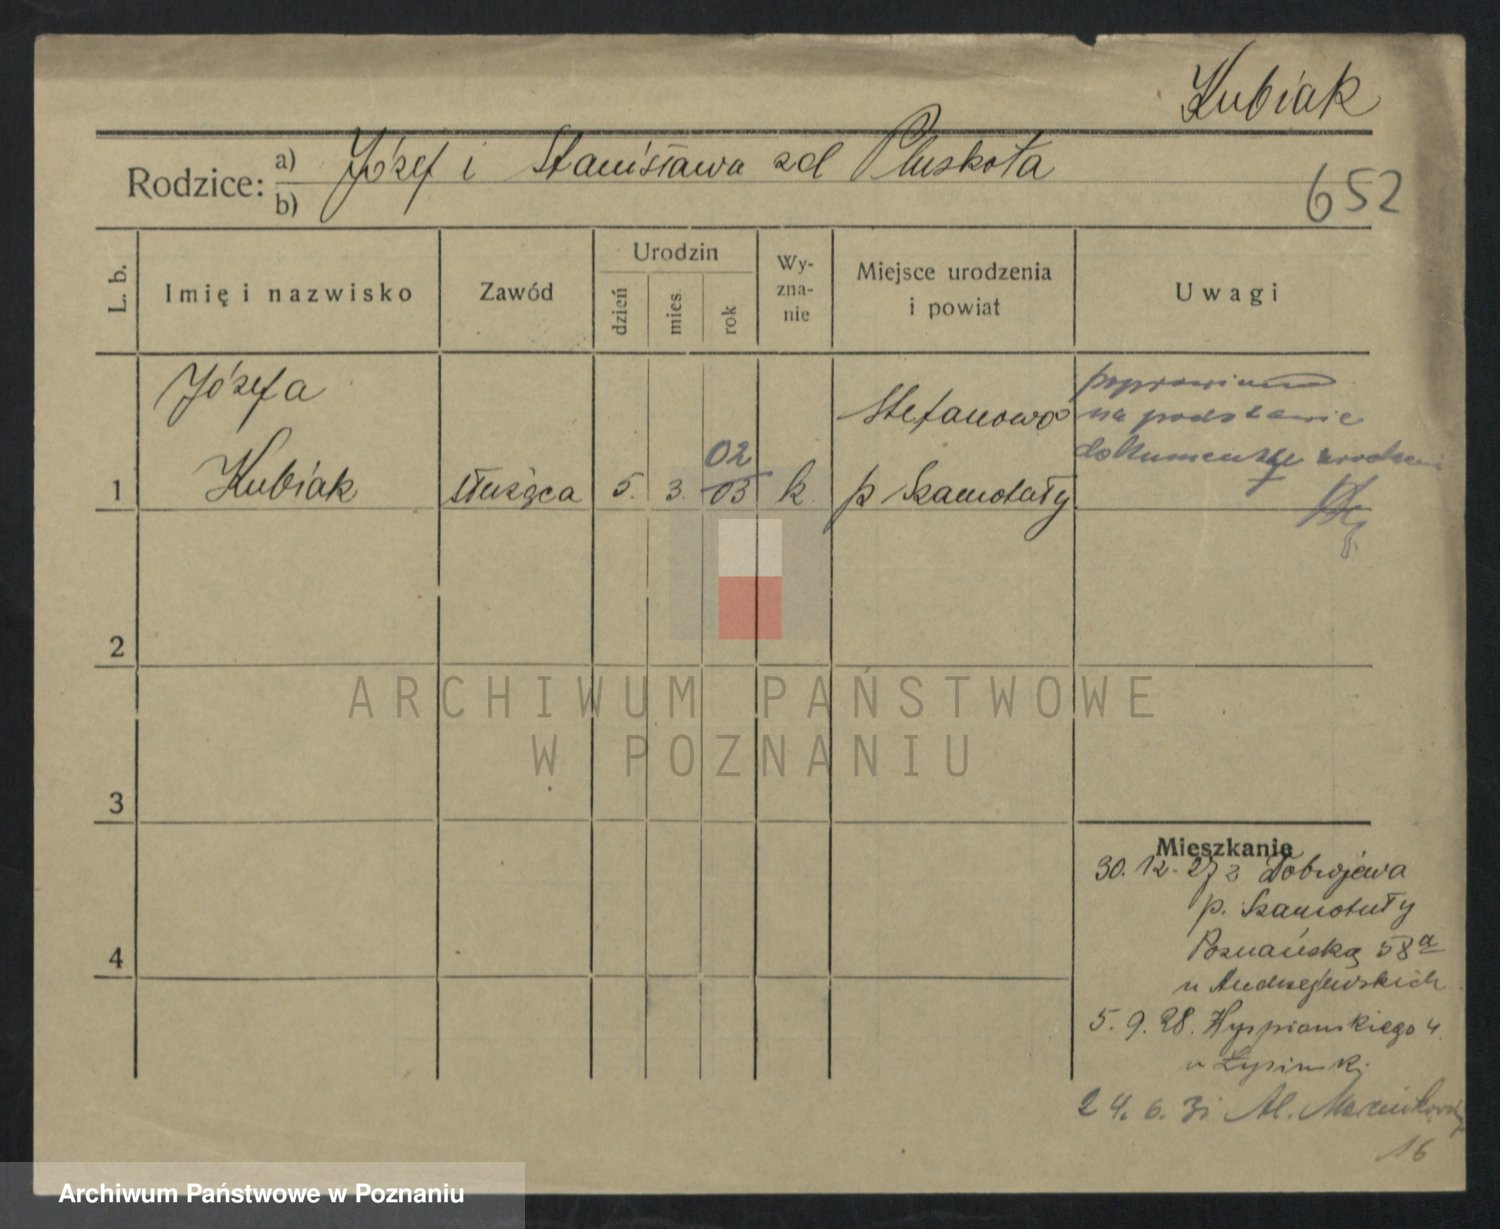 Kubiak
Rodzice: a) Józef i Stanisława zd Pluskota
b)
652
L. b.
Imię i nazwisko
Zawód
Urodzin
dzień
mies.
rok
Wy-
zna-
nie
Miejsce urodzenia
i powiat
Uwagi
1
Józefa
Kubiak
służąca
5.
3.
02
03
k.
Stefanowo
p Szamotuły
poprawiono
na podstawie
dokumentu urodzenia
2
ARCHIWUM PAŃSTWOWE
W POZNANIU
3
4
Mieszkanie
30. 12. 27 z Dobrojewa
p. Szamotuły
Poznańska 58a
u Andrzejewskich
5. 9. 28. Wyspiańskiego 4.
u
24. 6. 31 Al. Marcinkowskiego
16
Archiwum Państwowe w Poznaniu